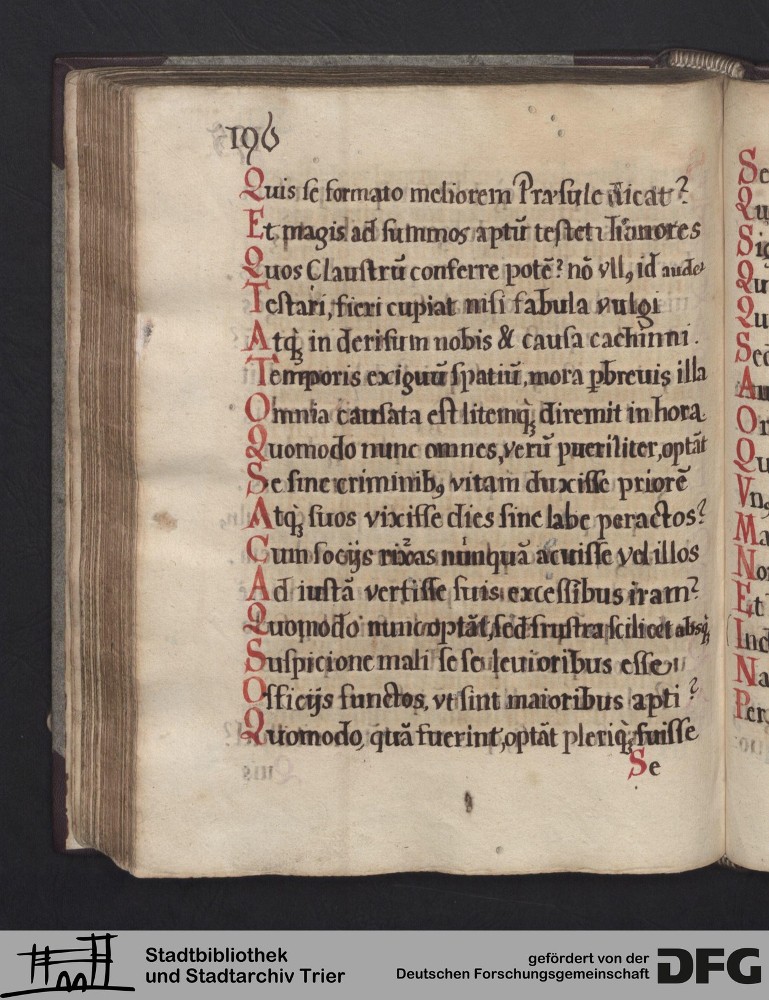 196
Quis se formato meliorem Præsule dicat?
Et magis ad summos aptū testet honores
Quos Claustrū conferre potē? nō vllꝰ id
Testari, fieri cupiat nisi fabula vulgi
Atq̄ in derisum nobis & causa cachinni.
Temporis exiguū spatiū, mora p̱breuis illa
Omnia causata est litemq̄ diremit in hora
Quomodo nunc omnes, verū pueriliter, optāt
Se sine criminibꝰ vitam duxisse priorē
Atq̄ suos vixisse dies sine labe peractos?
Cum socijs rixas nūnquā acuisse vel illos
Ad iustā vertisse suis excessibus iram?
Quomodo nunc optāt, sed frustra scilicet absq̄
Suspicione mali se seu leuioribus esse
Officijs functos, vt sint maioribus apti?
Quomodo, quā fuerint, optāt pleriq̄, fuisse
Se
Se
Qu
Si
Qu
Qu
Sed
Au
Or
Qu
Vnꝰ
Ma
No
Et
(Ind
Na
Per
Stadtbibliothek
und Stadtarchiv Trier
gefördert von der
Deutschen Forschungsgemeinschaft
DFG